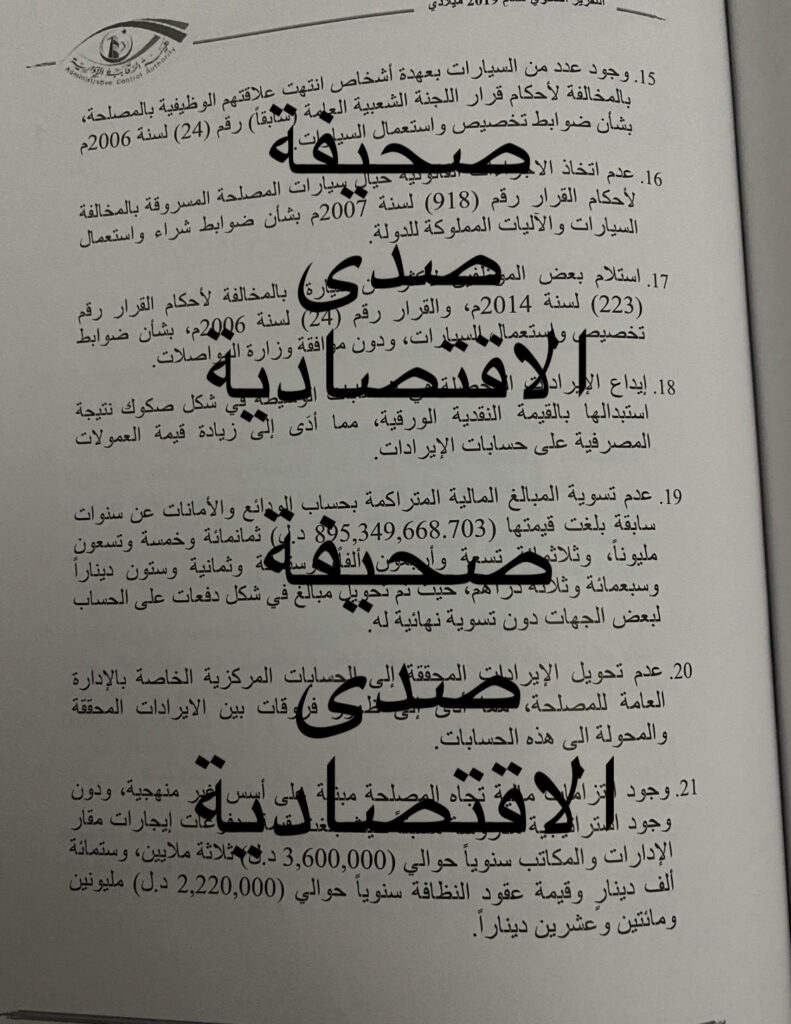 التقرير السنوي لعام 2019 ميلادي
هيئة الرقابة الإدارية
Administrative Control Authority
15. وجود عدد من السيارات بعهدة أشخاص انتهت علاقتهم الوظيفية بالمصلحة،
بالمخالفة لأحكام قرار اللجنة الشعبية العامة (سابقاً) رقم (24) لسنة 2006م
بشأن ضوابط تخصيص واستعمال السيارات.
صحيفة
16. عدم اتخاذ الاجراءات القانونية حيال سيارات المصلحة المسروقة بالمخالفة
لأحكام القرار رقم (918) لسنة 2007م بشأن ضوابط شراء واستعمال
السيارات والآليات المملوكة للدولة.
صدى
17. استلام بعض الموظفين من سيارة بالمخالفة لأحكام القرار رقم
(223) لسنة 2014م، والقرار رقم (24) لسنة 2006م، بشأن ضوابط
تخصيص واستعمال السيارات، ودون موافقة وزارة المواصلات.
الاقتصادية
18. إيداع الإيرادات في شكل صكوك نتيجة
استبدالها بالقيمة النقدية الورقية، مما أدَى إلى زيادة قيمة العمولات
المصرفية على حسابات الإيرادات.
19. عدم تسوية المبالغ المالية المتراكمة بحساب الودائع والأمانات عن سنوات
سابقة بلغت قيمتها (895,349,668.703 د.ل) ثمانمائة وخمسة وتسعون
صحيفة
مليوناً، وثلاثمائة تسعة وأربعون ألفاً، وستمائة وثمانية وستون ديناراً
وسبعمائة وثلاثة دراهم، حيث تم تحويل مبالغ في شكل دفعات على الحساب
لبعض الجهات دون تسوية نهائية له.
20. عدم تحويل الإيرادات المحققة إلى الحسابات المركزية الخاصة بالإدارة
صدى
العامة للمصلحة، مما أدى إلى ظهور فروقات بين الايرادات المحققة
والمحولة الى هذه الحسابات.
21. وجود التزامات مالية تجاه المصلحة مبنية على أسس غير منهجية، ودون
الاقتصادية
وجود استراتيجية إيجارات مقار
الإدارات والمكاتب سنوياً حوالي (3,600,000 د.ل) ثلاثة ملايين، وستمائة
ألف دينارٍ وقيمة عقود النظافة سنوياً حوالي (2,220,000 د.ل) مليونين
ومائتين وعشرين ديناراً.